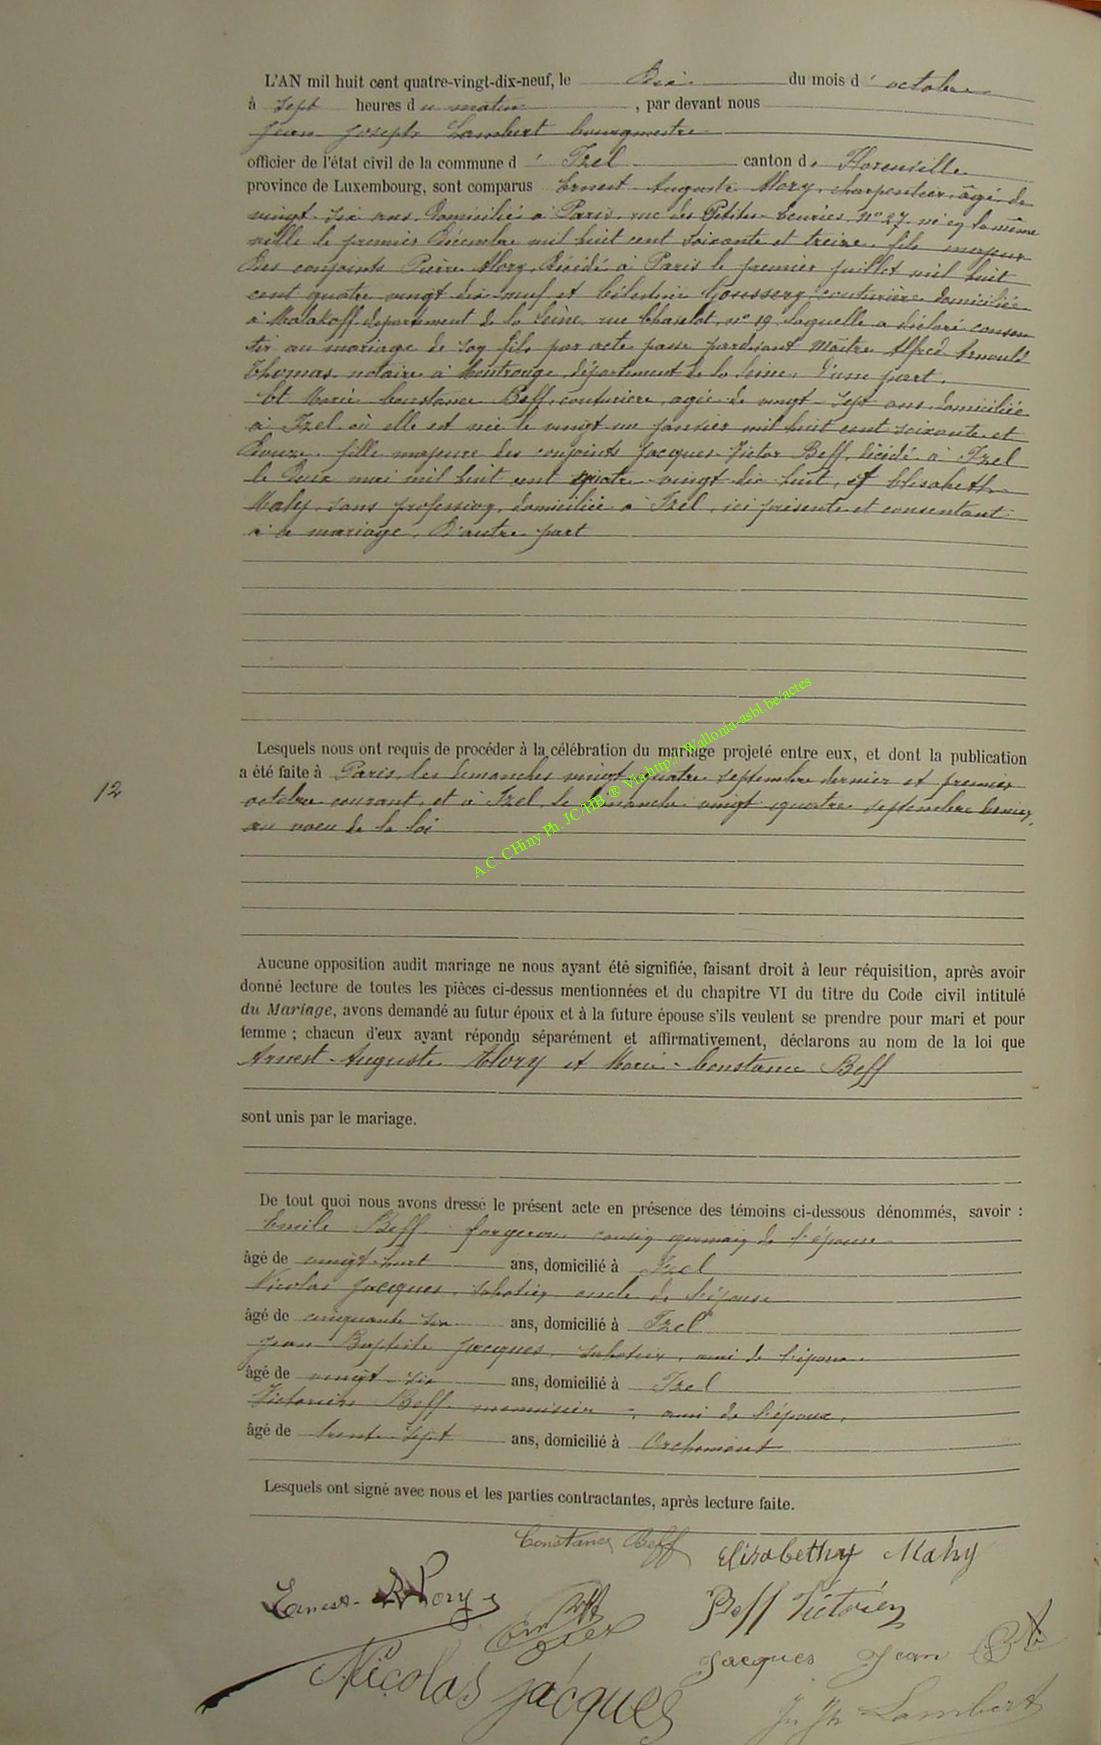 L'AN mil huit cent quatre-vingt-dix-neuf, le Dix du mois d'octobre
à sept heures du matin, par devant nous
Jean Joseph Lambert bourgmestre
officier de l'état civil de la commune d'Izel canton de Florenville
province de Luxembourg, sont comparus Ernest Auguste Alory, charpentier, âgé de
vingt six ans, domicilié à Paris, rue des Petites Ecuries, n° 27, né en la même
ville le premier Décembre mil huit cent soixante et treize, fils majeur
des conjoints Pierre Alory, décédé à Paris le premier juillet mil huit
cent quatre vingt dix neuf et Célestine couturière domiciliée
à Malakoff département de la Seine, rue Chaselot, n° 19, laquelle a déclaré consen
tir au mariage de son fils par acte passé pardevant Maître Alfred Arnould
Thomas notaire à Montrouge, département de la Seine, d'une part.
Et Marie Constance Beff, couturière, agée de vingt-sept ans, domiciliée
à Izel où elle est née le vingt un janvier mil huit cent soixante et
douze, fille majeure des conjoints Jacques Victor Beff, décédé à Izel
le mai mil huit cent quatre vingt dix huit, et Elisabeth
Mahy, sans profession, domiciliée à Izel, ici présente et consentant
à ce mariage, D'autre part
Lesquels nous ont requis de procéder à la célébration du mariage projeté entre eux, et dont la publication
a été faite à Paris, les dimanches vingt quatre septembre dernier et premier
octobre courant, et à Izel, le dimanche vingt quatre septembre dernier,
au voeu de la loi
12
A.C. CHiny Ph. JC/HB ® Via http://Wallonia-asbl.be/actes
Aucune opposition audit mariage ne nous ayant été signifiée, faisant droit à leur réquisition, après avoir
donné lecture de toutes les pièces ci-dessus mentionnées et du chapitre VI du titre du Code civil intitulé
du Mariage, avons demandé au futur époux et à la future épouse s'ils veulent se prendre pour mari et pour
femme ; chacun d'eux ayant répondu séparément et affirmativement, déclarons au nom de la loi que
Arnest-Auguste Alory et Marie-Constance Beff
sont unis par le mariage.
De tout quoi nous avons dressé le présent acte en présence des témoins ci-dessous dénommés, savoir :
Emile Beff forgeron, cousin germain de l'épouse
âgé de vingt-huit ans, domicilié à Izel
Nicolas Jacques, sabotier, oncle de l'épouse
âgé de cinquante six ans, domicilié à Izel
Jean Baptiste Jacques, sabotier, ami de l'époux
âgé de vingt-six ans, domicilié à Izel
Victorien Beff menuisier, ami de l'époux,
âgé de trente-sept ans, domicilié à Orchimont
Lesquels ont signé avec nous et les parties contractantes, après lecture faite.
Constance Beff Elisabethy Mahy
Ernest Alory Beff Victorien
Nicolas Jacques Jacques Jean Bte
Jn Jh Lambert